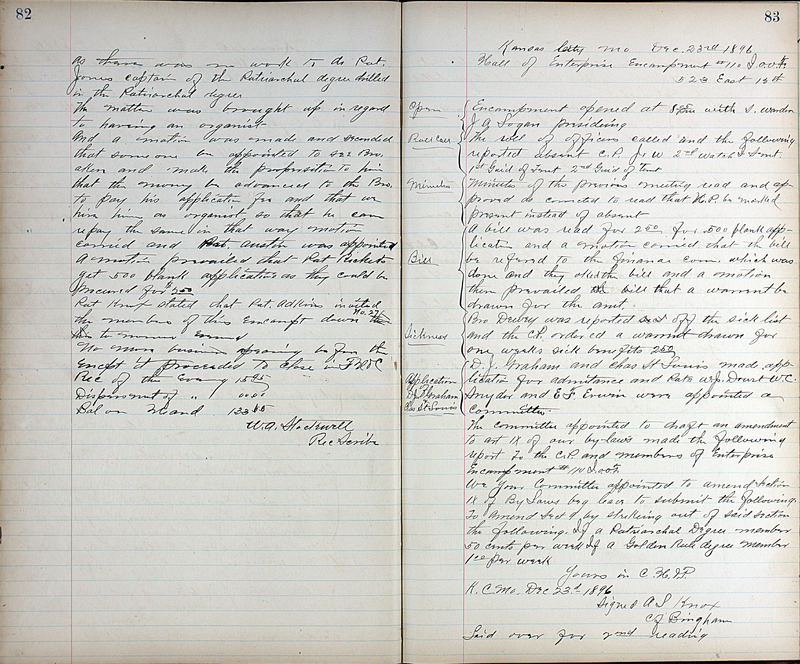 82
as there was no work to do Pat.
Jones captain of the Patriarchal degree drilled
in the Patriarchal degree
The matter was brought up in regard
to having an organist
And a motion was made and seconded
that some one be appointed to see Bro.
and make the proposition to him
that the money be advanced to the Bro.
to pay his application fee and that we
hire him as organist so that he can
repay the same in that way motion
carried and Pat Austin was appointed
A motion prevailed that Pat Ricketts
get 500 blank applications as they could be
procured for 2 50
Pat Knox stated that Pat. Adkins invited
the members of this Encampt down
No. 27
to
No more business appearing before the
Encpt it proceeded to close in F H & C
Rec of the Evening 15
Disbursment of " 00 00
Bal on Hand 133
W. A. Stockwell
Rec Scribe
83
Kansas City Mo Dec. 23rd 1896
Hall of Enterprise Encampment # 110 I.O.O.F.
523 East 15th
Open
Encampment opened at with S. Warden
J A Logan presiding
Roll Call
The roll of officers called and the following
reported absent C.P. J W 2nd Watch I Sent.
1st Guid of Tent 2nd Guid of Tent
Minutes
Minutes of the previous meeting read and ap-
proved as corrected to read that H.P. be marked
present instead of absent
A bill was read for 2 50 for 500 blank app-
lication and a motion carried that the bill
Bill
be referred to the finance com. which was
done and they o.k. the bill and a motion
then prevailed the bill that a warrant be
drawn for the amt.
Bro Drury was reported off the sick list
Sickness
and the C.P. ordered a warrant drawn for
one weeks sick benefits
D. J. Graham and Chas St Louis made app-
Application
lication for admitance and Pats W.J. Doust W.C.
D J Graham
Snyder and E.F. Erwin were appointed a
Chas St Louis
Committee
The committee appointed to draft an amendment
to art IX of our by-laws made the following
report To the C.P. and members of Enterprise
Encampment # 110 I.O.O.F.
We your Committee appointed to amend section
IX of By Laws beg leave to submit the following.
To amend Sect 9 by striking out of said section
the following. If a Patriarchal Degree member
50 cents per week If a Golden Rule degree member
1 00 per week
Yours in F. H. & C.
K. C. Mo. Dec 23d 1896
Signed A S Knox
C J Bingham
Laid over for 2nd reading